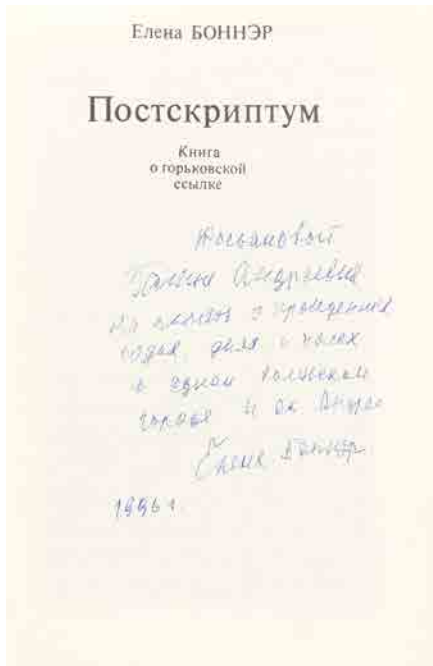 Елена БОННЭР
Постскриптум
Книга
о горьковской
ссылке
Галине Андреевне
на память о проведенных
днях и часах
в одном волжском
городе и об Андрее
Елена Боннэр.
1996 г.